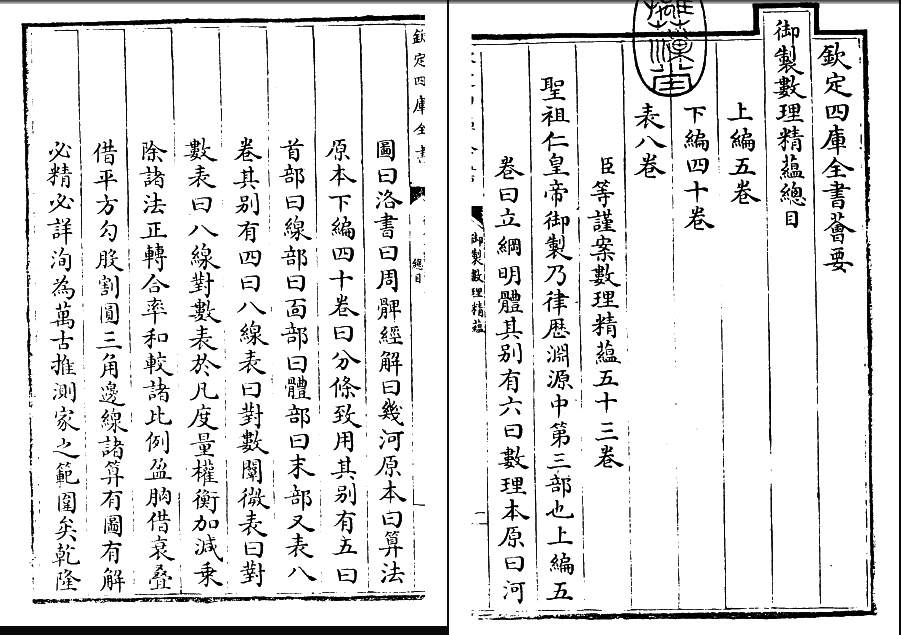 欽定四庫全書薈要
御製數理精蘊總目
上編五卷
下編四十卷
表八卷
臣等謹案數理精蘊五十三卷
聖祖仁皇帝御製乃律厯淵源中第三部也上編五
卷曰立綱明體其别有六曰數理本原曰河
御製數理精蘊
欽定四庫全書
總目
圖曰洛書曰周髀經解曰幾河原本曰算法
原本下編四十卷曰分條致用其别有五曰
首部曰線部曰面部曰體部曰末部又表八
卷其别有四曰八線表曰對數闡微表曰對
數表曰八線對數表於凡度量權衡加減乗
除諸法正轉合率和較諸比例盈朒借衰疊
借平方勾股割圓三角邊線諸算有圖有解
必精必詳洵為萬古推測家之範圍矣乾隆